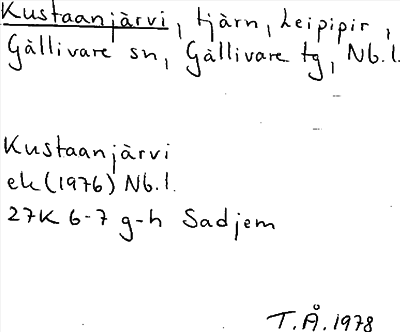 Kustaanjärvi, tjärn, Leipipir,
Gällivare sn, Gällivare tg, Nb.l.
Kustaanjärvi
ek (1976) Nb.l.
27K 6-7 g-h Sadjem
T.Å. 1978